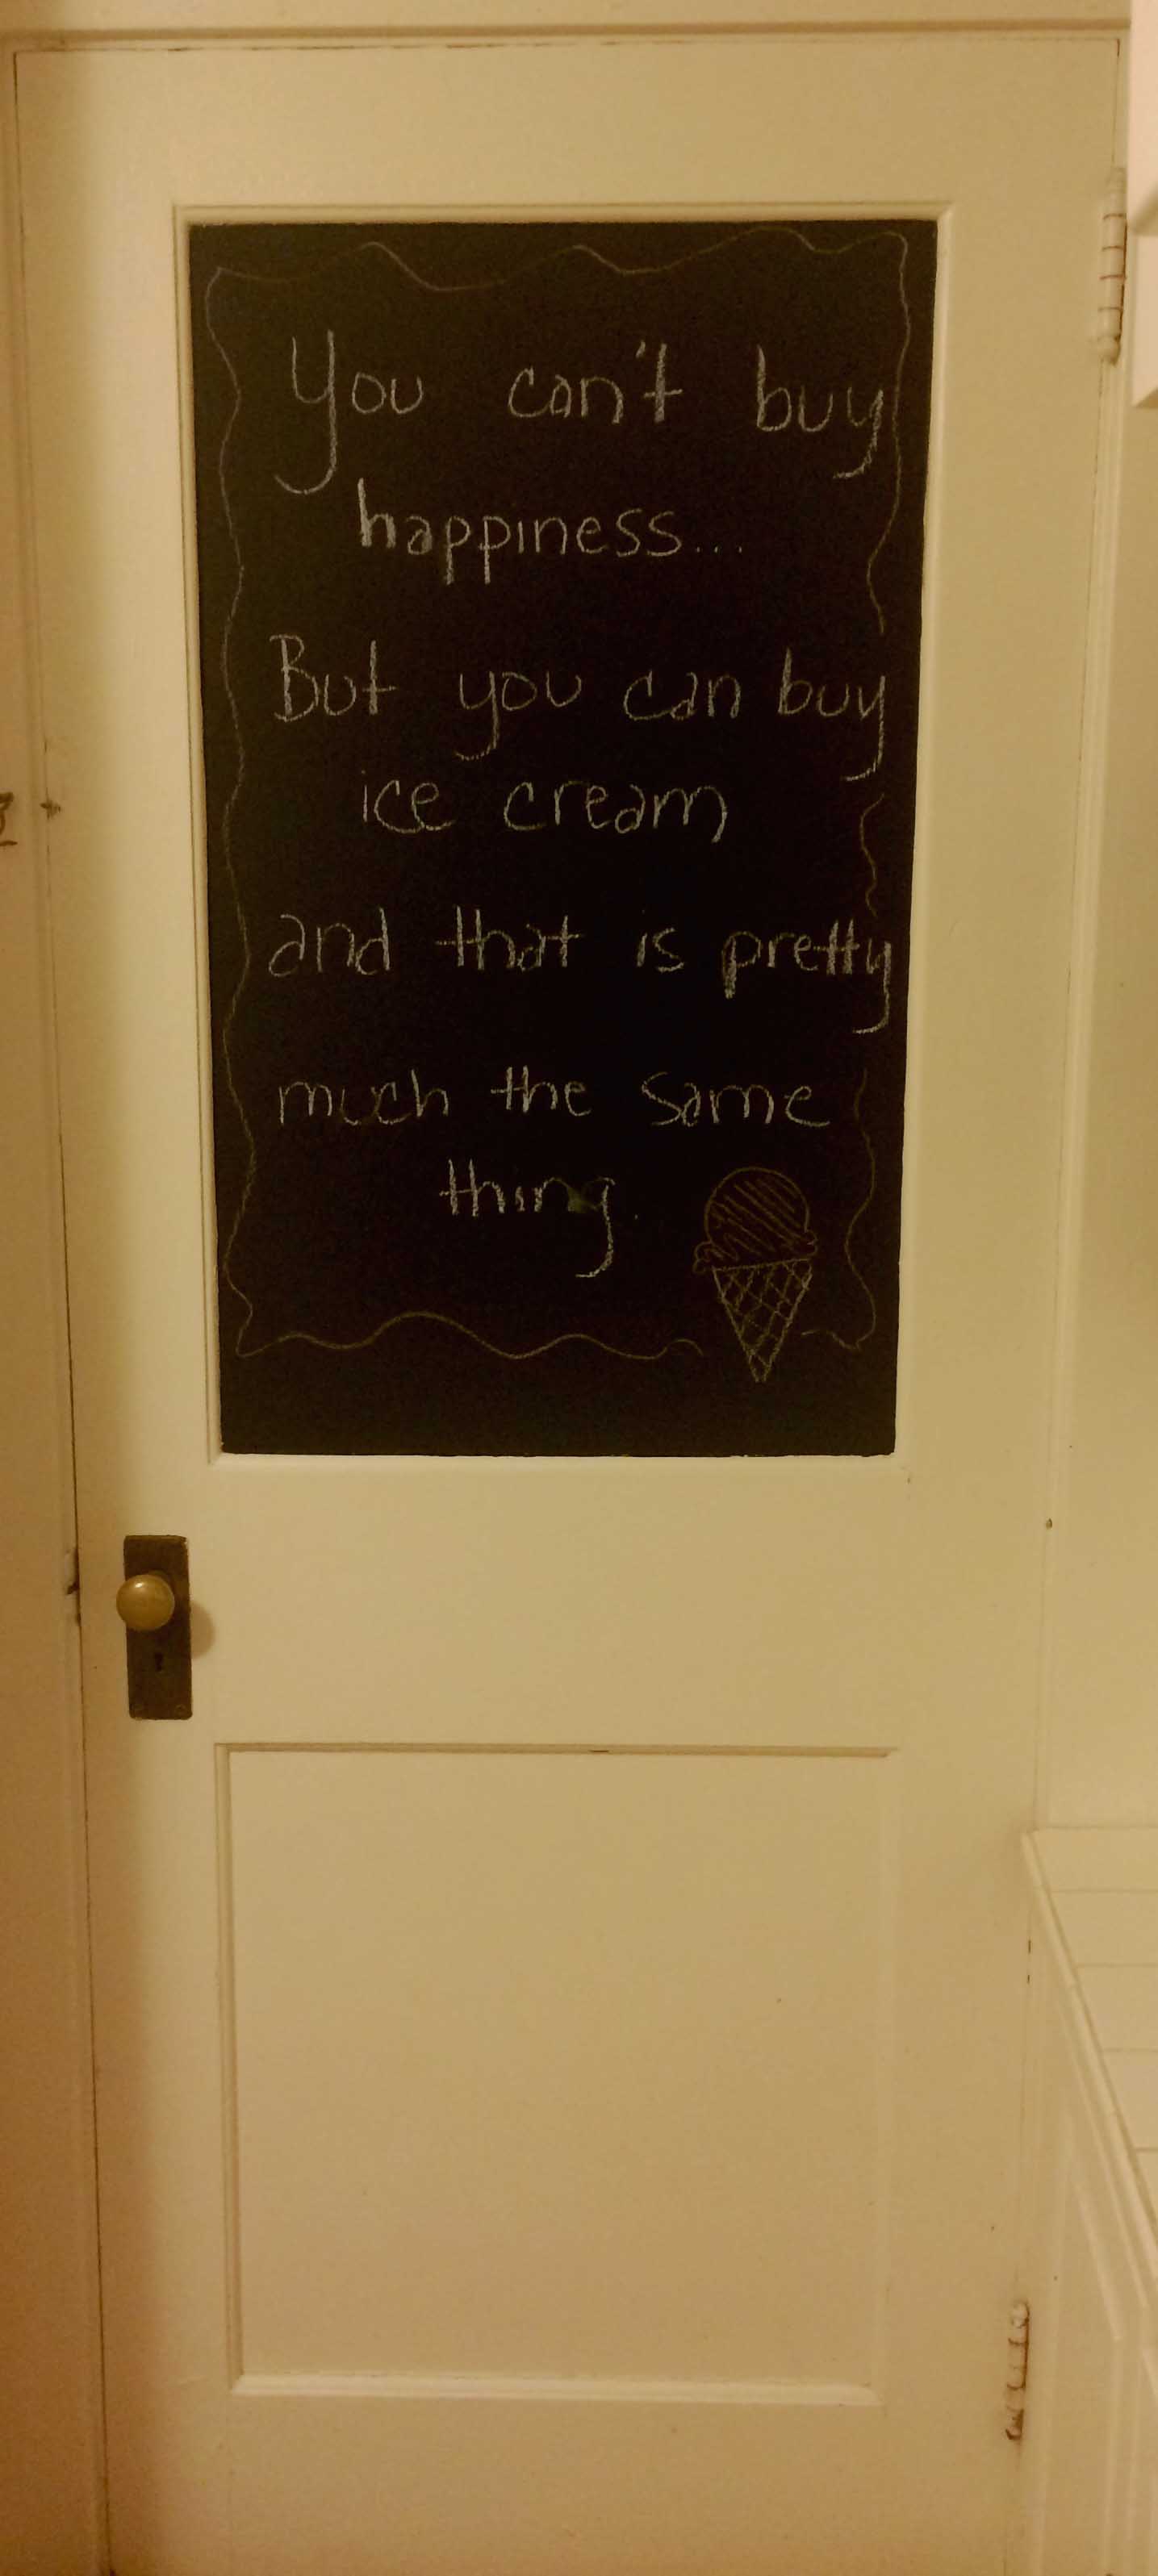 You can't buy
happiness...
But you can buy
ice cream
and that is pretty
much the same
thing.